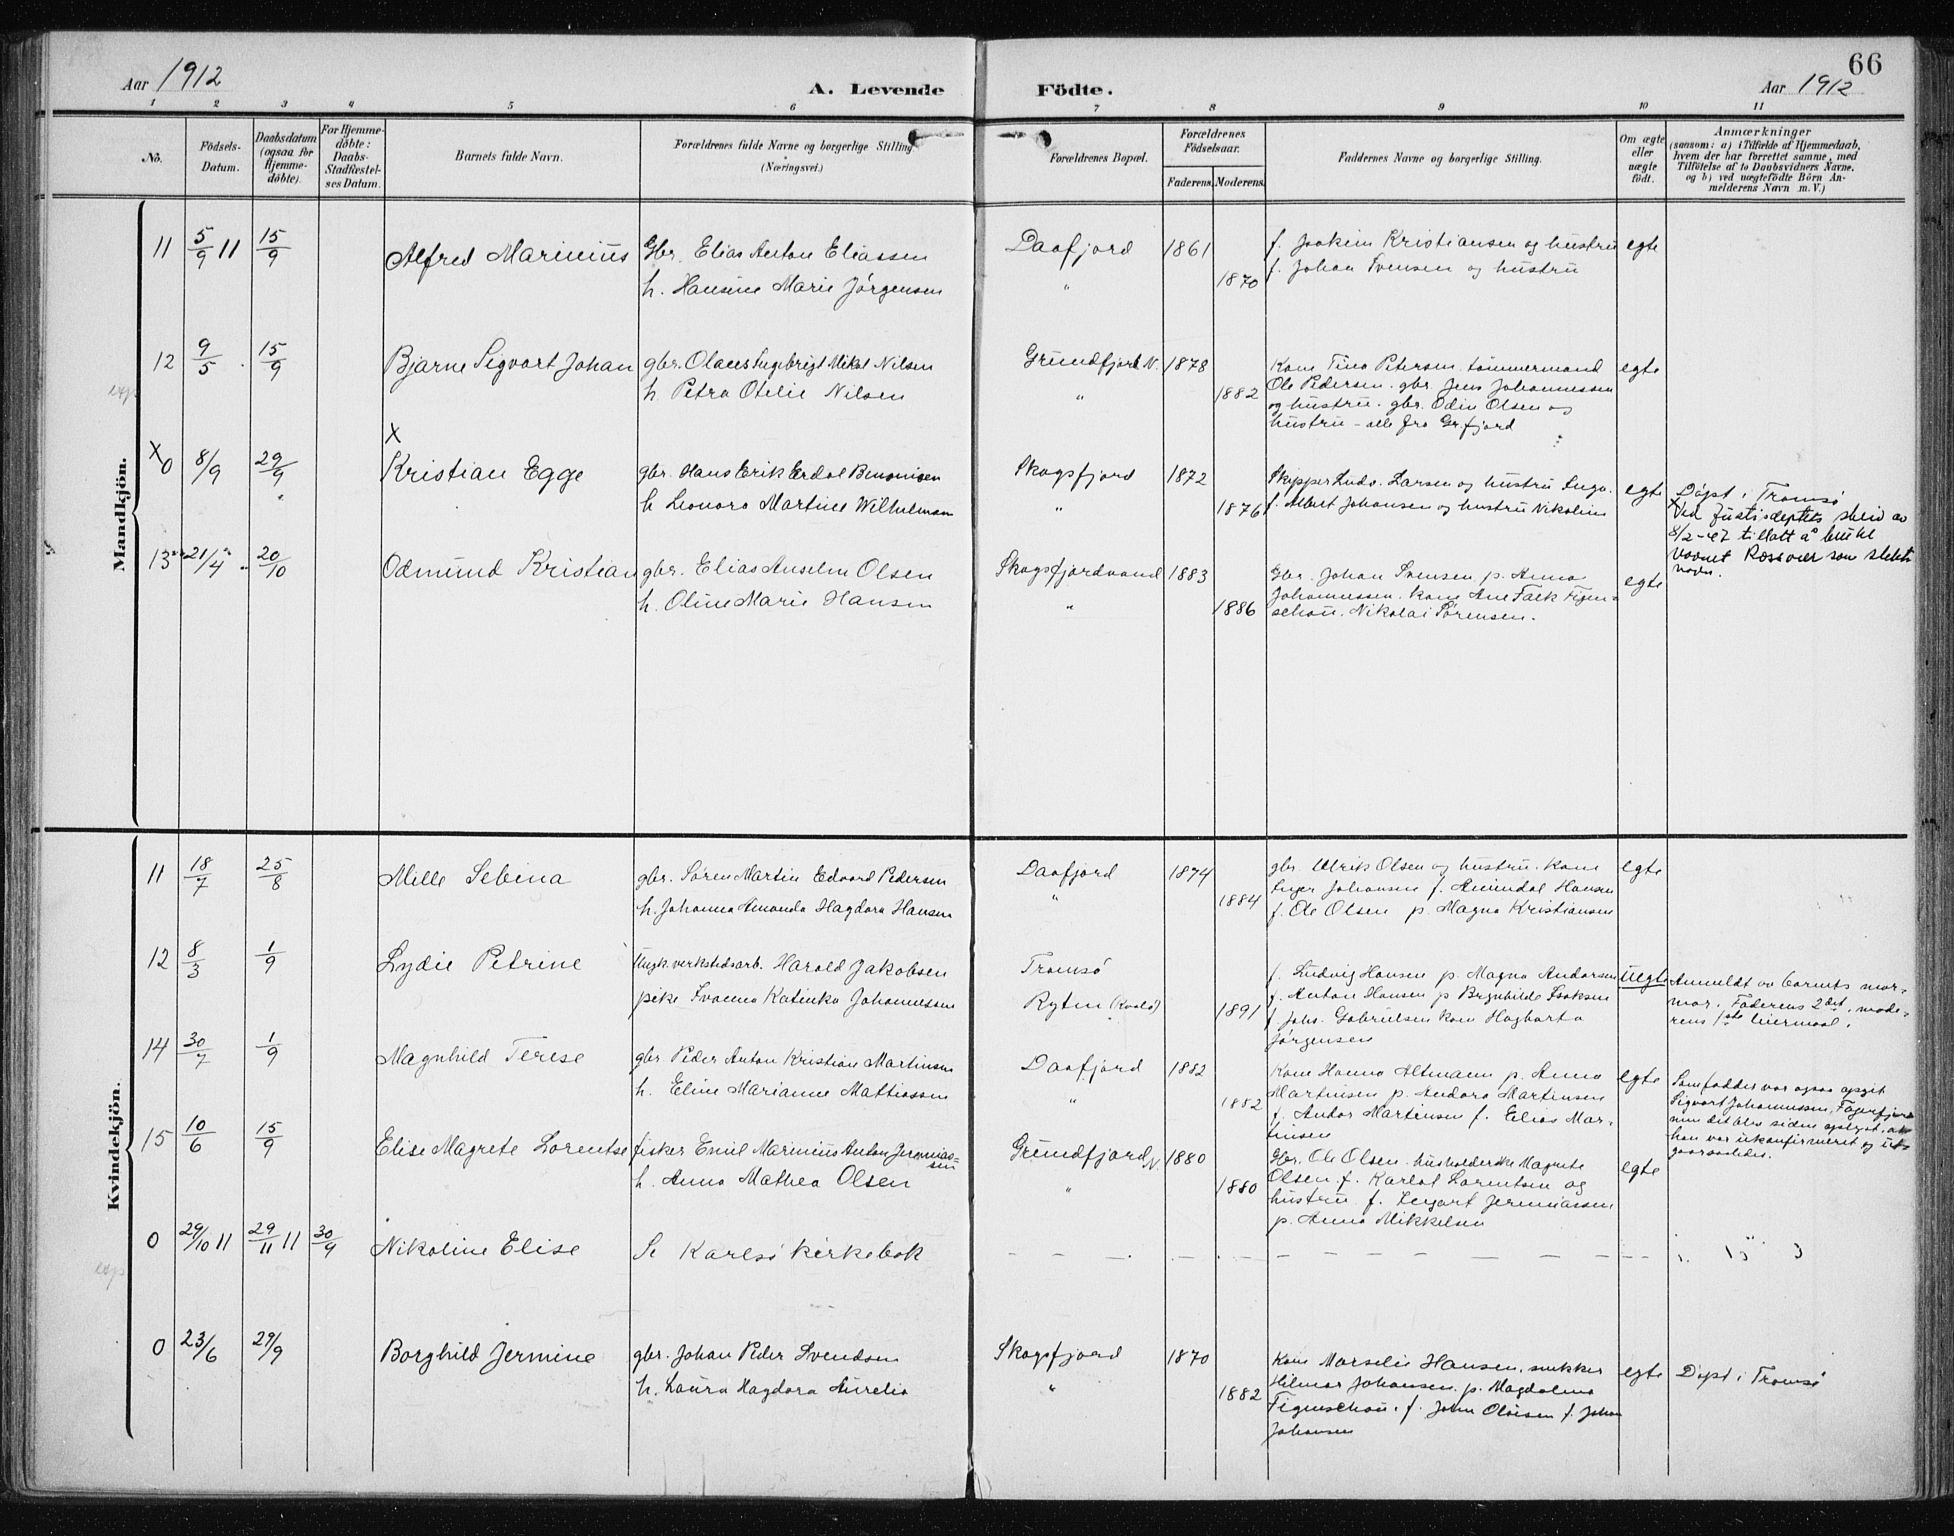 66
Aar 1912
A. Levende Födte.
Aar 1912
1 2 3 4 5 6 7 8 9 10 11
No.
Födsels-
Datum.
Daabsdatum
(ogsaa for
Hjemme-
döbte).
For Hjemme-
döbte:
Daabs-
Stadfæstel-
ses Datum.
Barnets fulde Navn.
Forældrenes fulde Navne og borgerlige Stilling
(Næringsvei.)
Forældrenes Bopæl.
Forældrenes
Födselsaar.
Faderens. Moderens.
Faddernes Navne og borgerlige Stilling.
Om ægte
eller
uægte
födt.
Anmærkninger
(saasom: a) i Tilfælde af Hjemmedaab,
hvem der har forrettet samme, med
Tilföielse af to Daabsvidners Navne,
og b) ved uægtefödte Börn An-
melderens Navn m. V.)
Mandkjön.
11 5/9 11 15/9 Alfred Marinius Gbr. Elias Anton Eliassen Daafjord 1861 f. Joakim Kristiansen og hustru egte
h. Hansine Marie Jørgensen " 1870 f. Johan Svensen og hustru
12 9/5 15/9 Bjarne Sigvart Johan gbr. Olaus Ingebrigt Mikal Nilsen Grundfjord N. 1878 Kone Tina Petersen. tømmermand egte
h. Petra Otelie Nilsen " 1882 Ole Pedersen. gbr. Jens Johannessen
og hustru. gbr. Odin Olsen og
hustru - alle fra Gr.fjord
X
X 0 8/9 29/9 Kristian Egge gbr. Hans Erik Erdal Benonisen Skogsfjord 1872 Skipper Ludv. Larsen og hustru Inga. egte
h. Leonora Martine Wilhelmsen " 1876 f. Albert Johansen og hustru Nikoline
Døpt i Tromsø
X Ved Justisdeptets skriv av
8/2-47 tillatt å bruke
navnet Rossvær som slekts
navn.
13 21/4 20/10 Odmund Kristian gbr. Elias Anselm Olsen Skogsfjordvand 1883 Gbr. Johan Svensen p. Anna egte
h. Oline Marie Hansen " 1886 Johannessen. Kone Ane Falk Figen-
schou. Nikolai Sørensen.
Kvindekjön.
11 18/7 25/8 Mille Sebina gbr. Søren Martin Edvard Pedersen Daafjord 1874 gbr. Ulrik Olsen og hustru. Kone egte
h. Johanna Amanda Hagdora Hansen " 1884 Inger Johansen f. Amandal Hansen
f. Ole Olsen p. Magna Kristiansen
12 8/3 1/9 Lydie Petrine Ungk. verkstedsarb. Harald Jakobsen Tromsø f. Ludvig Hansen p. Magna Andersen uegte
pike Svanna Katinka Johannessen Rytm (Kvalø) 1891 f. Anton Hansen p Brynhilde Isaksen
f Johs. Gabrielsen kone Hagbarta
Jørgensen
Anmeldt av barnets mor-
mor. Faderens 2det, mode-
rens 1ste leiermaal.
14 30/7 1/9 Magnhild Terese gbr. Peder Anton Kristian Martinsen Daafjord 1882 Kone Hanna Altmann p. Anna egte
h. Eline Marianne Mattiassen " 1882 Martinsen p. Andora Martinsen
f. Andor Martinsen f. Elias Mar-
tinsen
Som fadder var ogsaa opgit
Sigvart Johannessen, Fagerfjord
men det blev siden oplyst, at
han var ukonfirmeret og
15 10/6 15/9 Elise Magrete Lorentse fisker Emil Marinius Anton Jeremias-
sen Grundfjord N. 1880 Gbr. Ole Olsen. husholderske Magrete egte
h. Anna Mathea Olsen " 1880 Olsen f. Karlot Lorentsen og
hustru f. Ingart Jeremiassen
p. Anna Mikkelsen
0 29/10 11 29/11 11 30/9 Nikoline Elise Se Karlsø kirkebok
0 23/6 29/9 Borghild Jermine gbr. Johan Peder Svendsen Skogsfjord 1870 Kone Marselie Hansen. snekker egte Døpt i Tromsø
h. Laura Hagdora Aurelia " 1882 Hilmar Johansen. p. Magdalena
Figenschou. f. John Olaisen f. Johan
Johansen